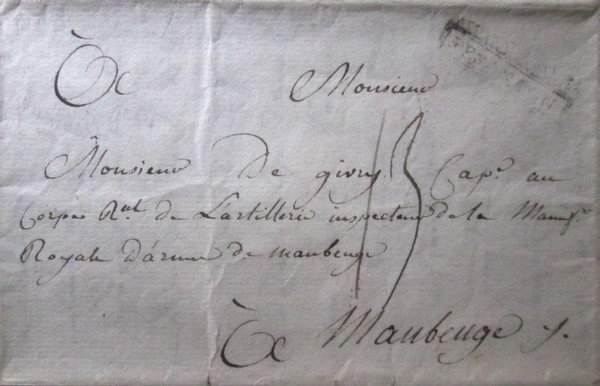 À Monsieur
Monsieur De givry Cap.e au
Corps R.al de L'artillerie inspecteur de la Manuf.re
Royale d'armes de maubeuge
13
À Maubeuge